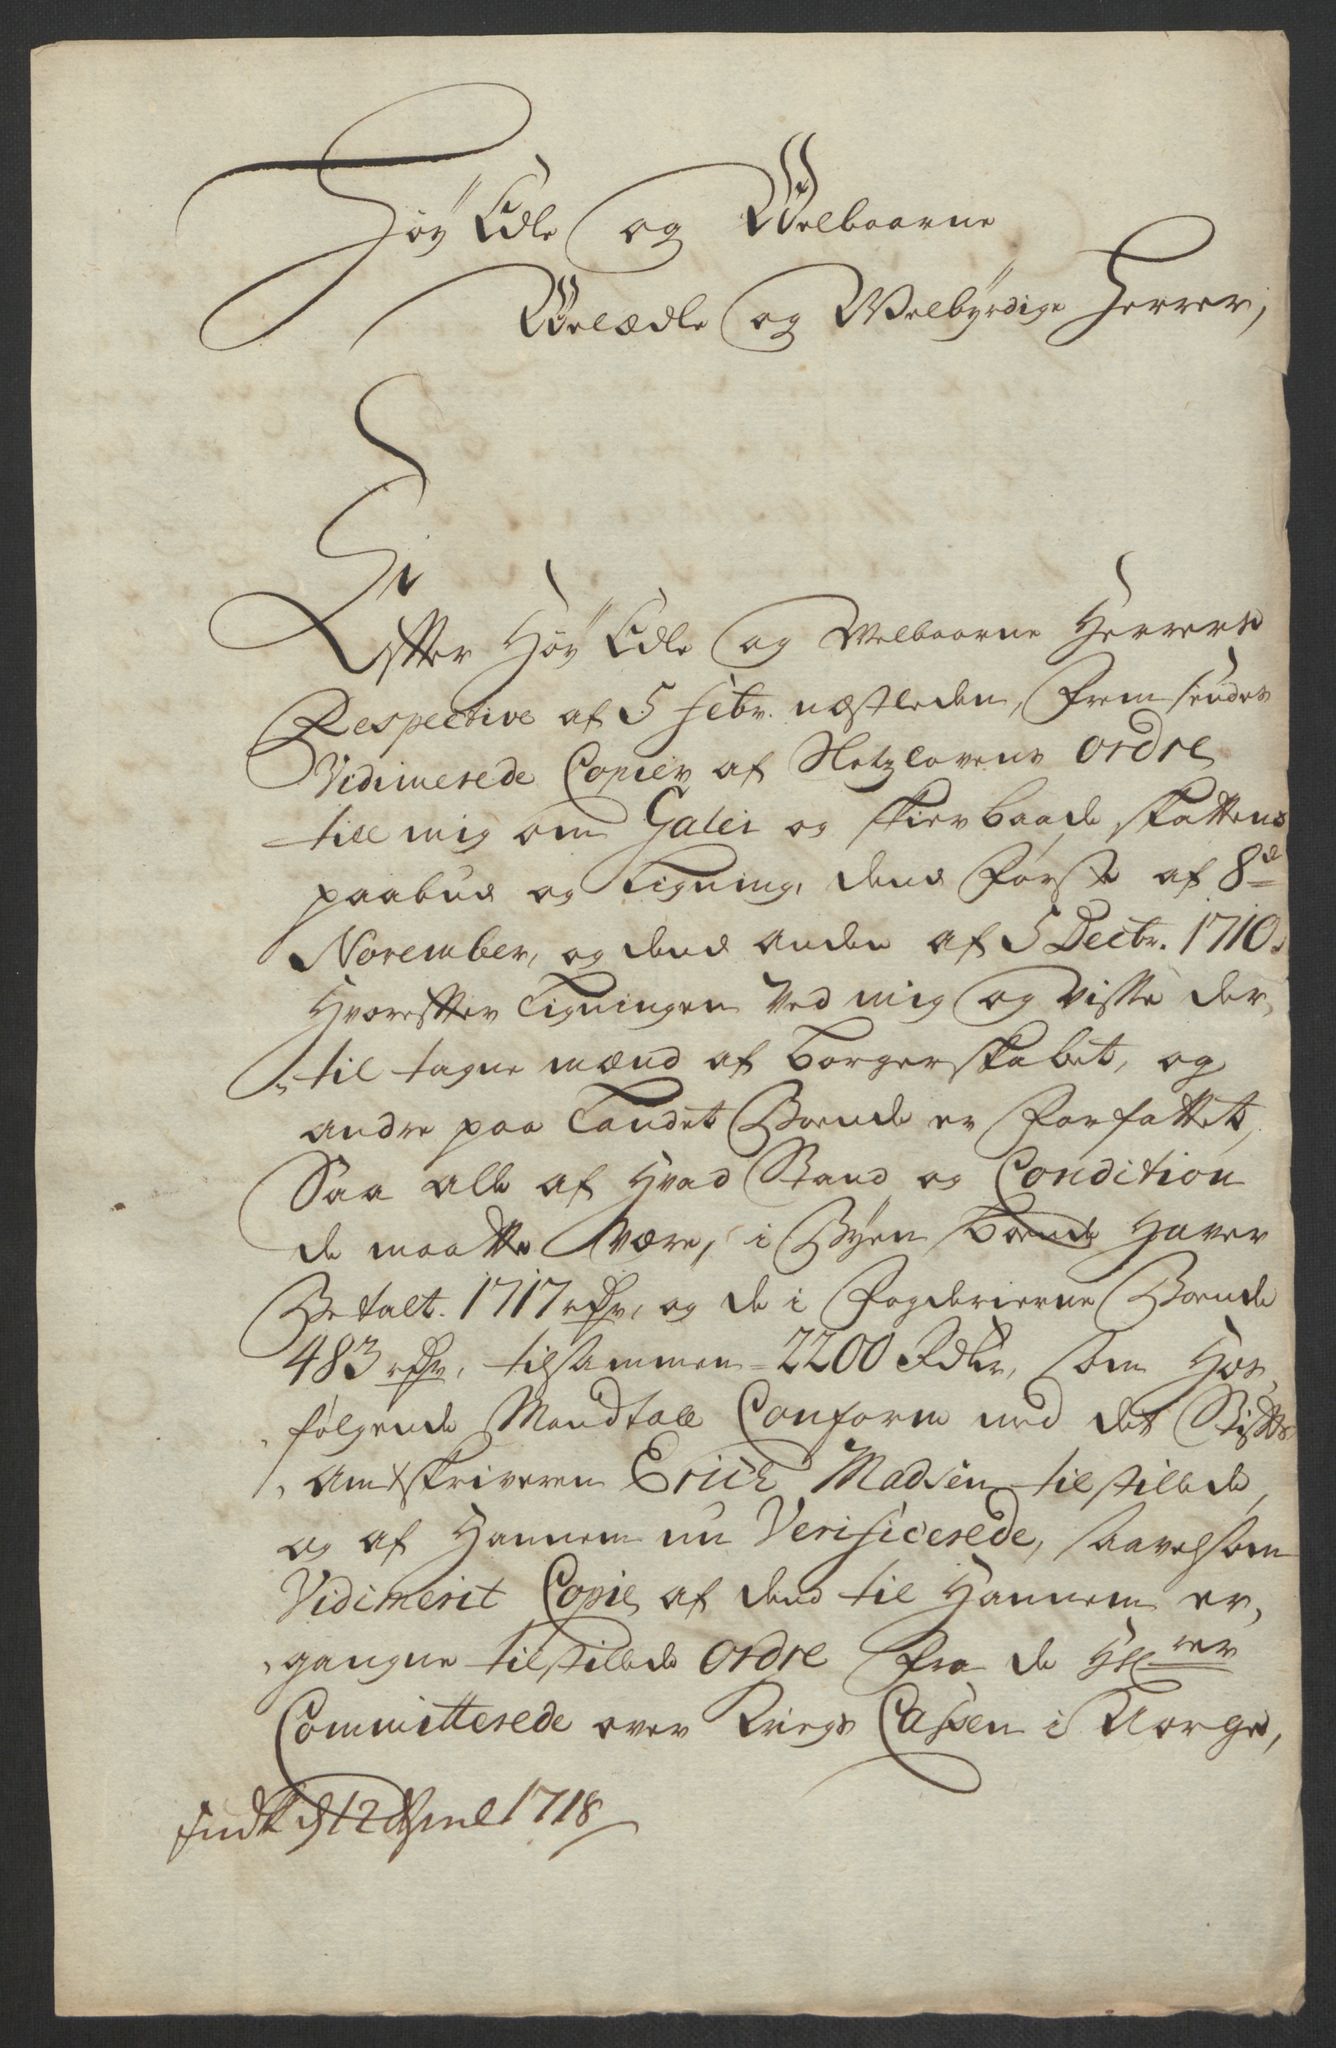 Høy Edle og Welbaarne
Welædle og Welbyrdige Herrer,
Efter Høy Edle og Welbaarne Herrers
Respective af 5 febr. næstleden, frem sendes
Vidimerede Copier af Slotzlovens ordre
till mig om Galei og skiærbaads skattens
paabud og Ligning, dend første af 8de
November, og dend anden af 5 Decbr. 1710.
Hvorefter Ligningen ved mig og visse der,
til tagne mænd af borgerskabet, og
andre paa Landet Boende er forfattet,
Saa alle af Hvad Stand og Condition
de maatte være, i Byen boende haver
Betalt. 1717 rdr, og de i Fogderierne Boende
483 rdr, tilsammen 2200 Rdlr, som Hos,
følgende Mandtall Conform med det Stifts
Amtskriveren Erich Madsen tilstillede
og af Hannem nu Verificerede, saavelsom
Vidimerit Copie af dend til Hannem er,
gangne tilstillede ordre fra de Hrer
Committerede over Krigs Cassen i Norge,
indk d 12 April 1718